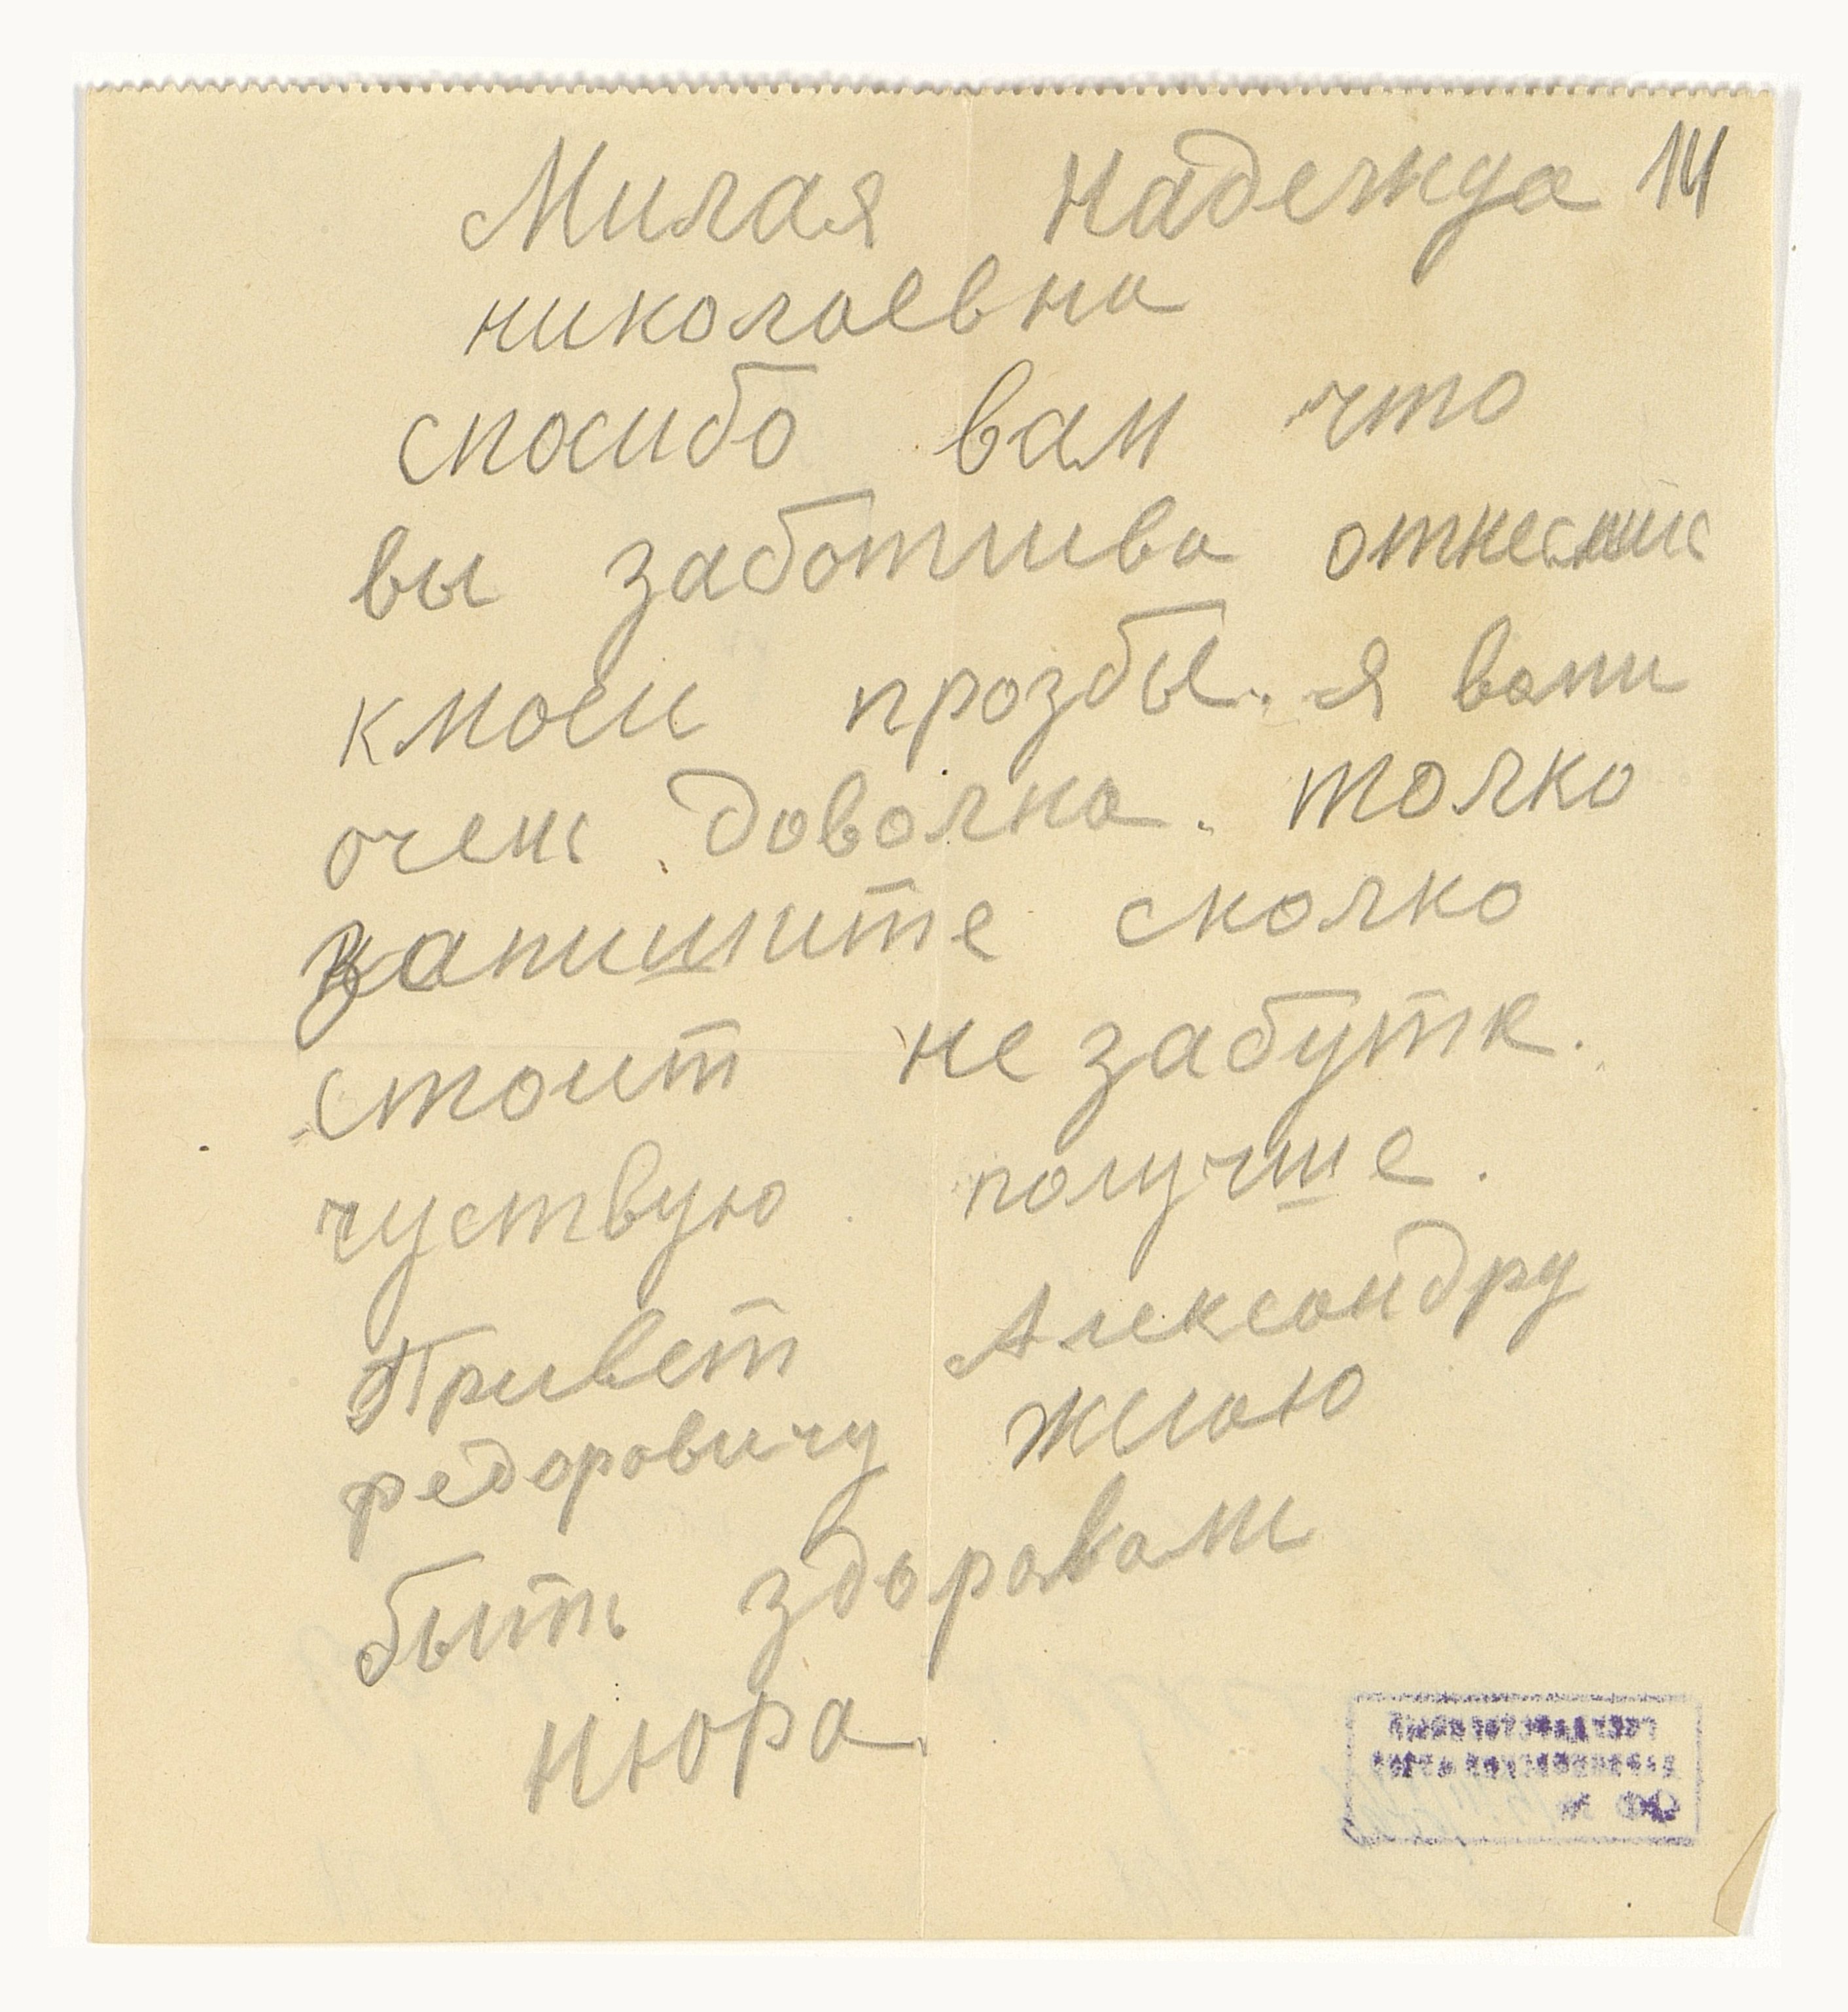 Милая Надежда 14
николаевна
спосибо вам что
вы заботлива отнеслис
кмоеи прозбы. Я вами
очень доволна. толко
запишите сколко
стоит не забутте.
чуствую получше.
Привет Александру
федоровичу желаю
быть здоровами
Нюра.